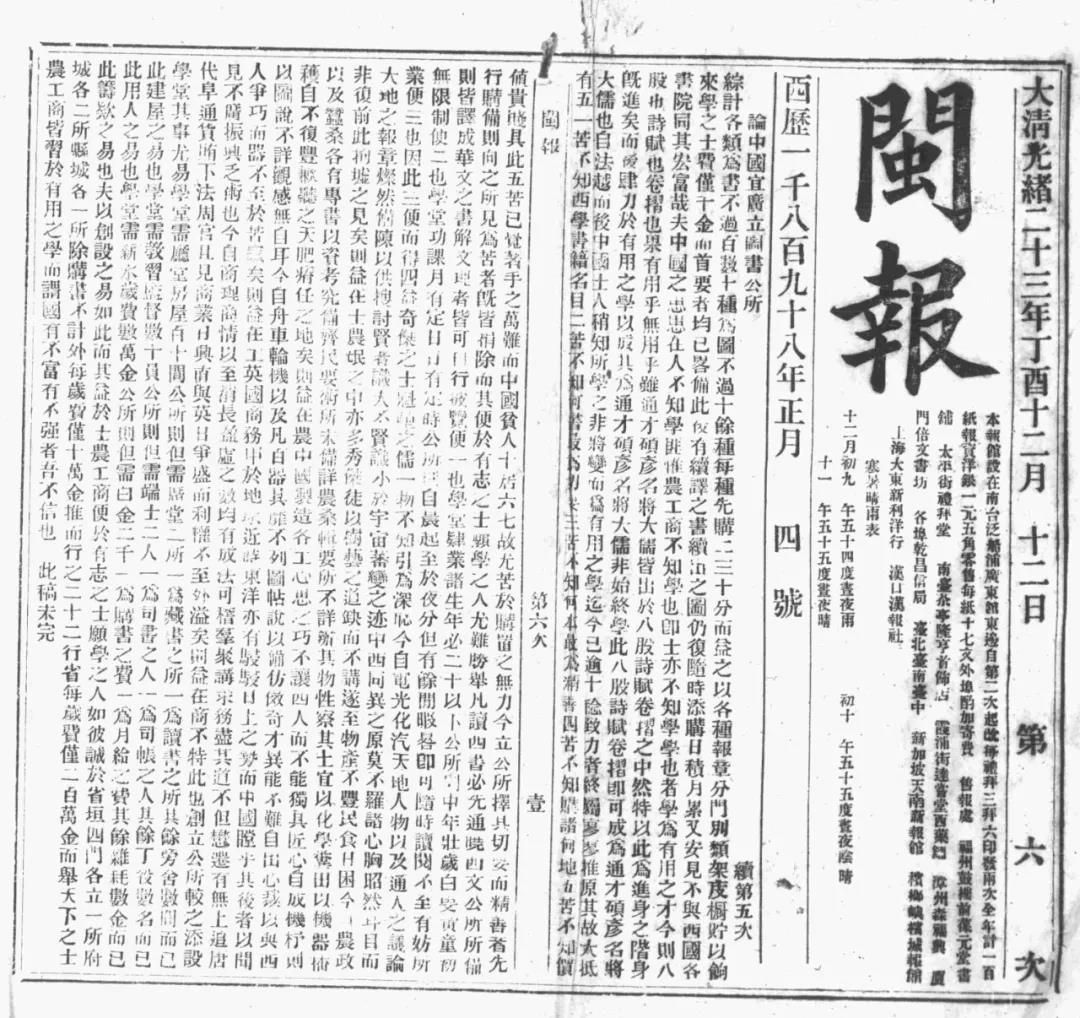 大清光緒二十三年丁酉十二月十二日　第六次
閩報
本報館設在南台泛船浦廣東館東邊自第二次起改每禮拜三拜六印發兩次全年計一百
紙報資洋銀一元五角零售每紙十七文外埠酌加寄費　售報處　福州鼓樓前保元堂書
鋪　太平街禮拜堂　南臺茶亭隆亨首飾店　霞浦街達當堂西藥鋪　漳州森福興　廈
門倍文書坊　各埠乾昌信局　臺北臺南臺中　新加坡天南新報館　檳榔嶼檳城報館
上海大東新利洋行　漢口漢報社
寒暑晴雨表
十二月初九　午五十四度晝夜雨　初十　午五十五度晝夜陰晴
十一　午五十五度晝夜晴
西歷一千八百九十八年正月　四號
論中國宜廣立圖書公所　續第五次
綜計各類爲書不過百數十種爲圖不過十餘種每種先購二三十分而益之以各種報章分門別類架庋櫥貯以餉
來學之士費僅千金而首要者均已畧備此後有續譯之書續出之圖仍復隨時添購日積月累又安見不與西國各
書院同其宏富哉夫中國之患患在人不知學匪惟農工商不知學也卽士亦不知學學也者學爲有用之才今則八
股也詩賦也卷摺也果有用乎無用乎雖通才碩彥名將大儒皆出於八股詩賦卷摺之中然特以此爲進身之階身
旣進矣而後肆力於有用之學以成其爲通才碩彥名將大儒非始終學此八股詩賦卷摺卽可成爲通才碩彥名將
大儒也自法越而後中國士人稍知所學之非將變而爲有用之學迄今已逾十稔致力者終屬寥寥推原其故大抵
有五一苦不知西學書籍名目二苦不知何書最爲切要三苦不知何本最爲精善四苦不知購諸何地五苦不知價
閩報　第六次　壹
値貴賤具此五苦已覺著手之萬難而中國貧人十居六七故尤苦於購置之無力今立公所擇其切要而精善者先
行購備則向之所見爲苦者旣皆捐除而其便於有志之士願學之人尤難勝舉凡讀西書必先通曉西文公所所備
則皆譯成華文之書解文理者皆可自行披覽便一也學堂肄業諸生年必二十以下公所則中年壯歲白叟黃童初
無限制便二也學堂功課月有定日日有定時公所則自晨起至於夜分但有餘閒暇晷卽可隨時讀閱不至有妨所
業便三也因此三便而得四益奇傑之士魁碩之儒一物不知引爲深恥今自電光化汽天地人物以及通人之議論
大地之報章燦然備陳以供搜討賢者識大不賢識小於宇宙蕃變之迹中西同異之原莫不羅諸心胸昭然耳目而
非復前此拘墟之見矣則益在士農氓之中亦多秀傑徒以樹藝之道缺而不講遂至物產不豐民食日困今農政
以及蠶桑各有專書以資考究備齊民要術所未備詳農桑輯要所不詳辨其物性察其土宜以化學糞田以機器插
穫自不復豐歉聽之天肥瘠任之地矣則益在農中國製造各工心思之巧不讓西人而不能獨具匠心自成機杼則
以圖說不詳觀感無自耳今自舟車輪機以及凡百器具靡不列圖帖說以備仿傚奇才異能不難自出心裁以與西
人爭巧而器不至於苦窳矣則益在工英國商務甲於地球近時東洋亦有駸駸日上之勢而中國瞠乎其後者以聞
見不廣振興乏術也今自商理商情以至消長盈虛之數均有成法可稽羣聚講求務盡其道不但懋遷有無上追唐
代阜通貨賄下法周官且見商業日興直與英日爭盛而利權不至外溢矣則益在商不特此也創立公所較之添設
學堂其事尤易學堂需廳堂房屋百十間公所則但需廣堂二所一爲藏書之所一爲讀書之所其餘旁舍數間而已
此建屋之易也學堂需教習監督數十員公所則但需端士二人一爲司書之人一爲司帳之人其餘丁役數名而已
此用人之易也學堂需薪水歲費數萬金公所則但需白金二千一爲購書之費一爲月給之費其餘雜耗數金而已
此籌欵之易也夫以創設之易如此而其益於士農工商便於有志之士願學之人如彼誠於省垣四門各立一所府
城各二所縣城各一所除購書不計外每歲費僅十萬金推而行之二十二行省每歲費僅二百萬金而舉天下之士
農工商皆習於有用之學而謂國有不富有不强者吾不信也　此稿未完